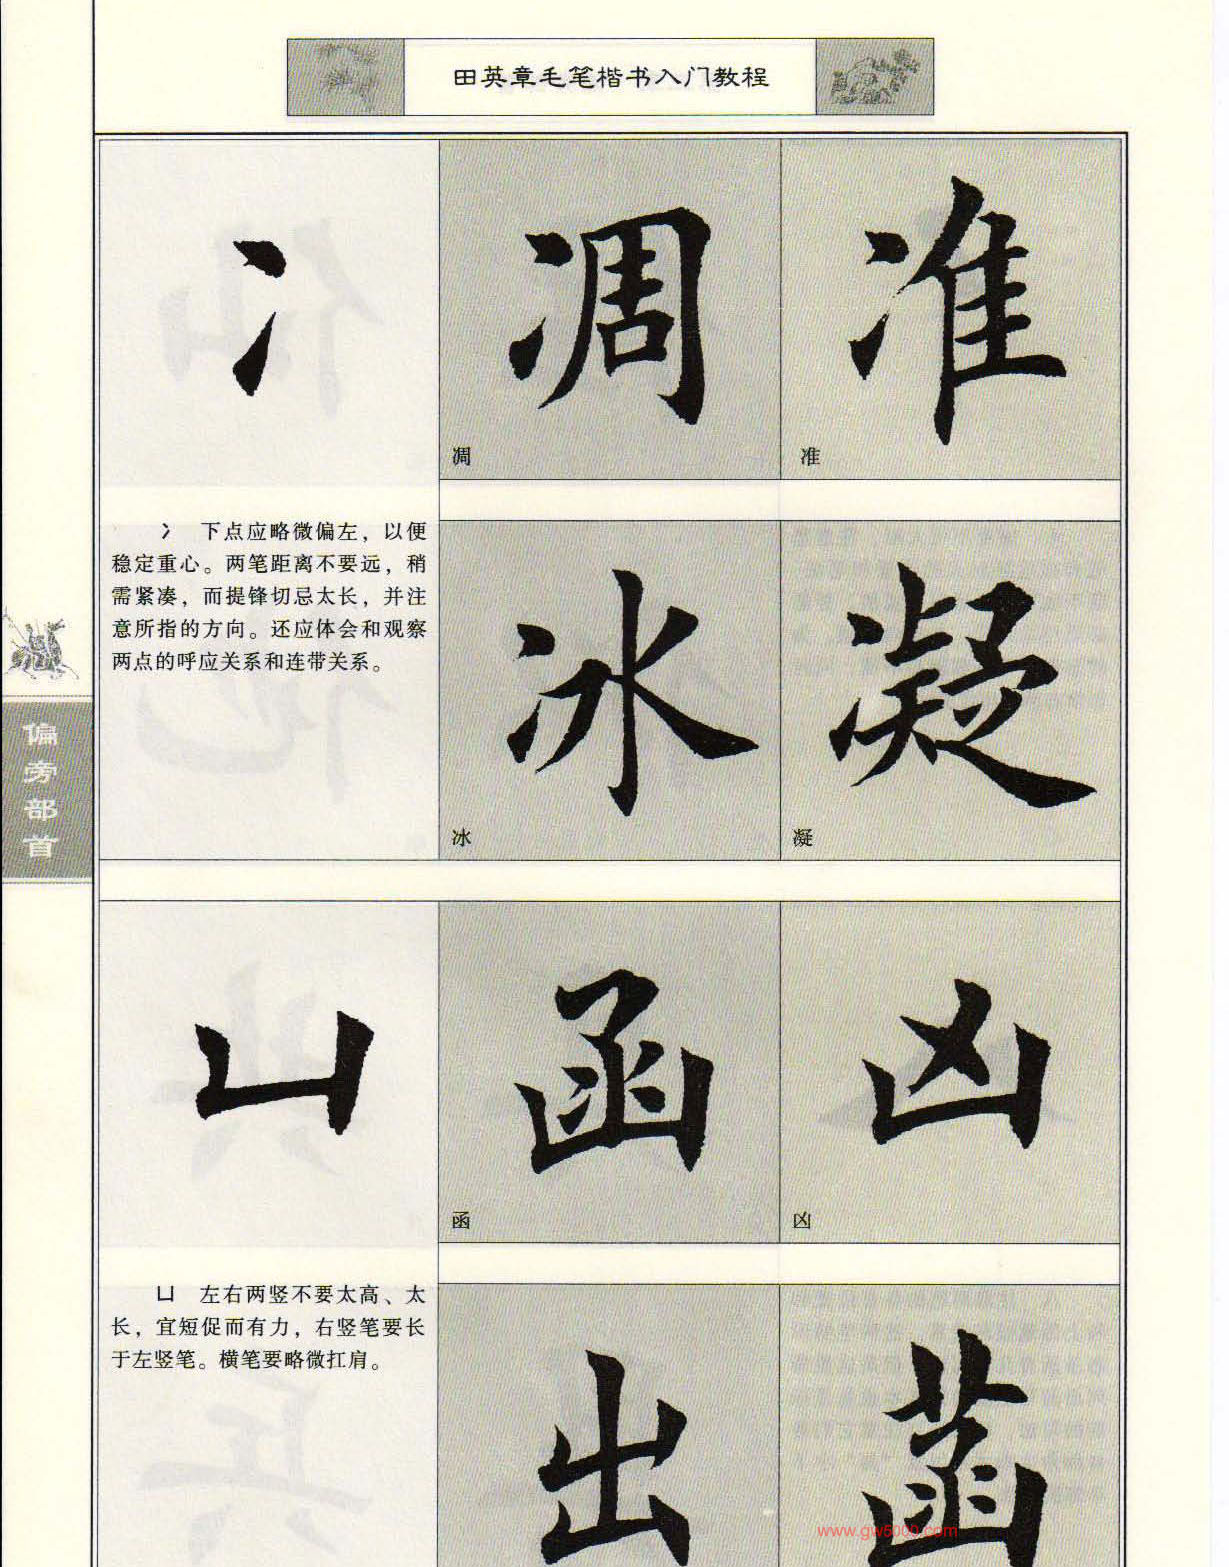 田英章毛笔楷书入门教程
冫 凋 准
凋 准
冫 下点应略微偏左，以便
稳定重心。两笔距离不要远，稍
需紧凑，而提锋切忌太长，并注
意所指的方向。还应体会和观察
两点的呼应关系和连带关系。
冰 凝
冰 凝
偏旁部首
凵 函 凶
函 凶
凵 左右两竖不要太高、太
长，宜短促而有力，右竖笔要长
于左竖笔。横笔要略微扛肩。
出 菡
www.gw5000.com